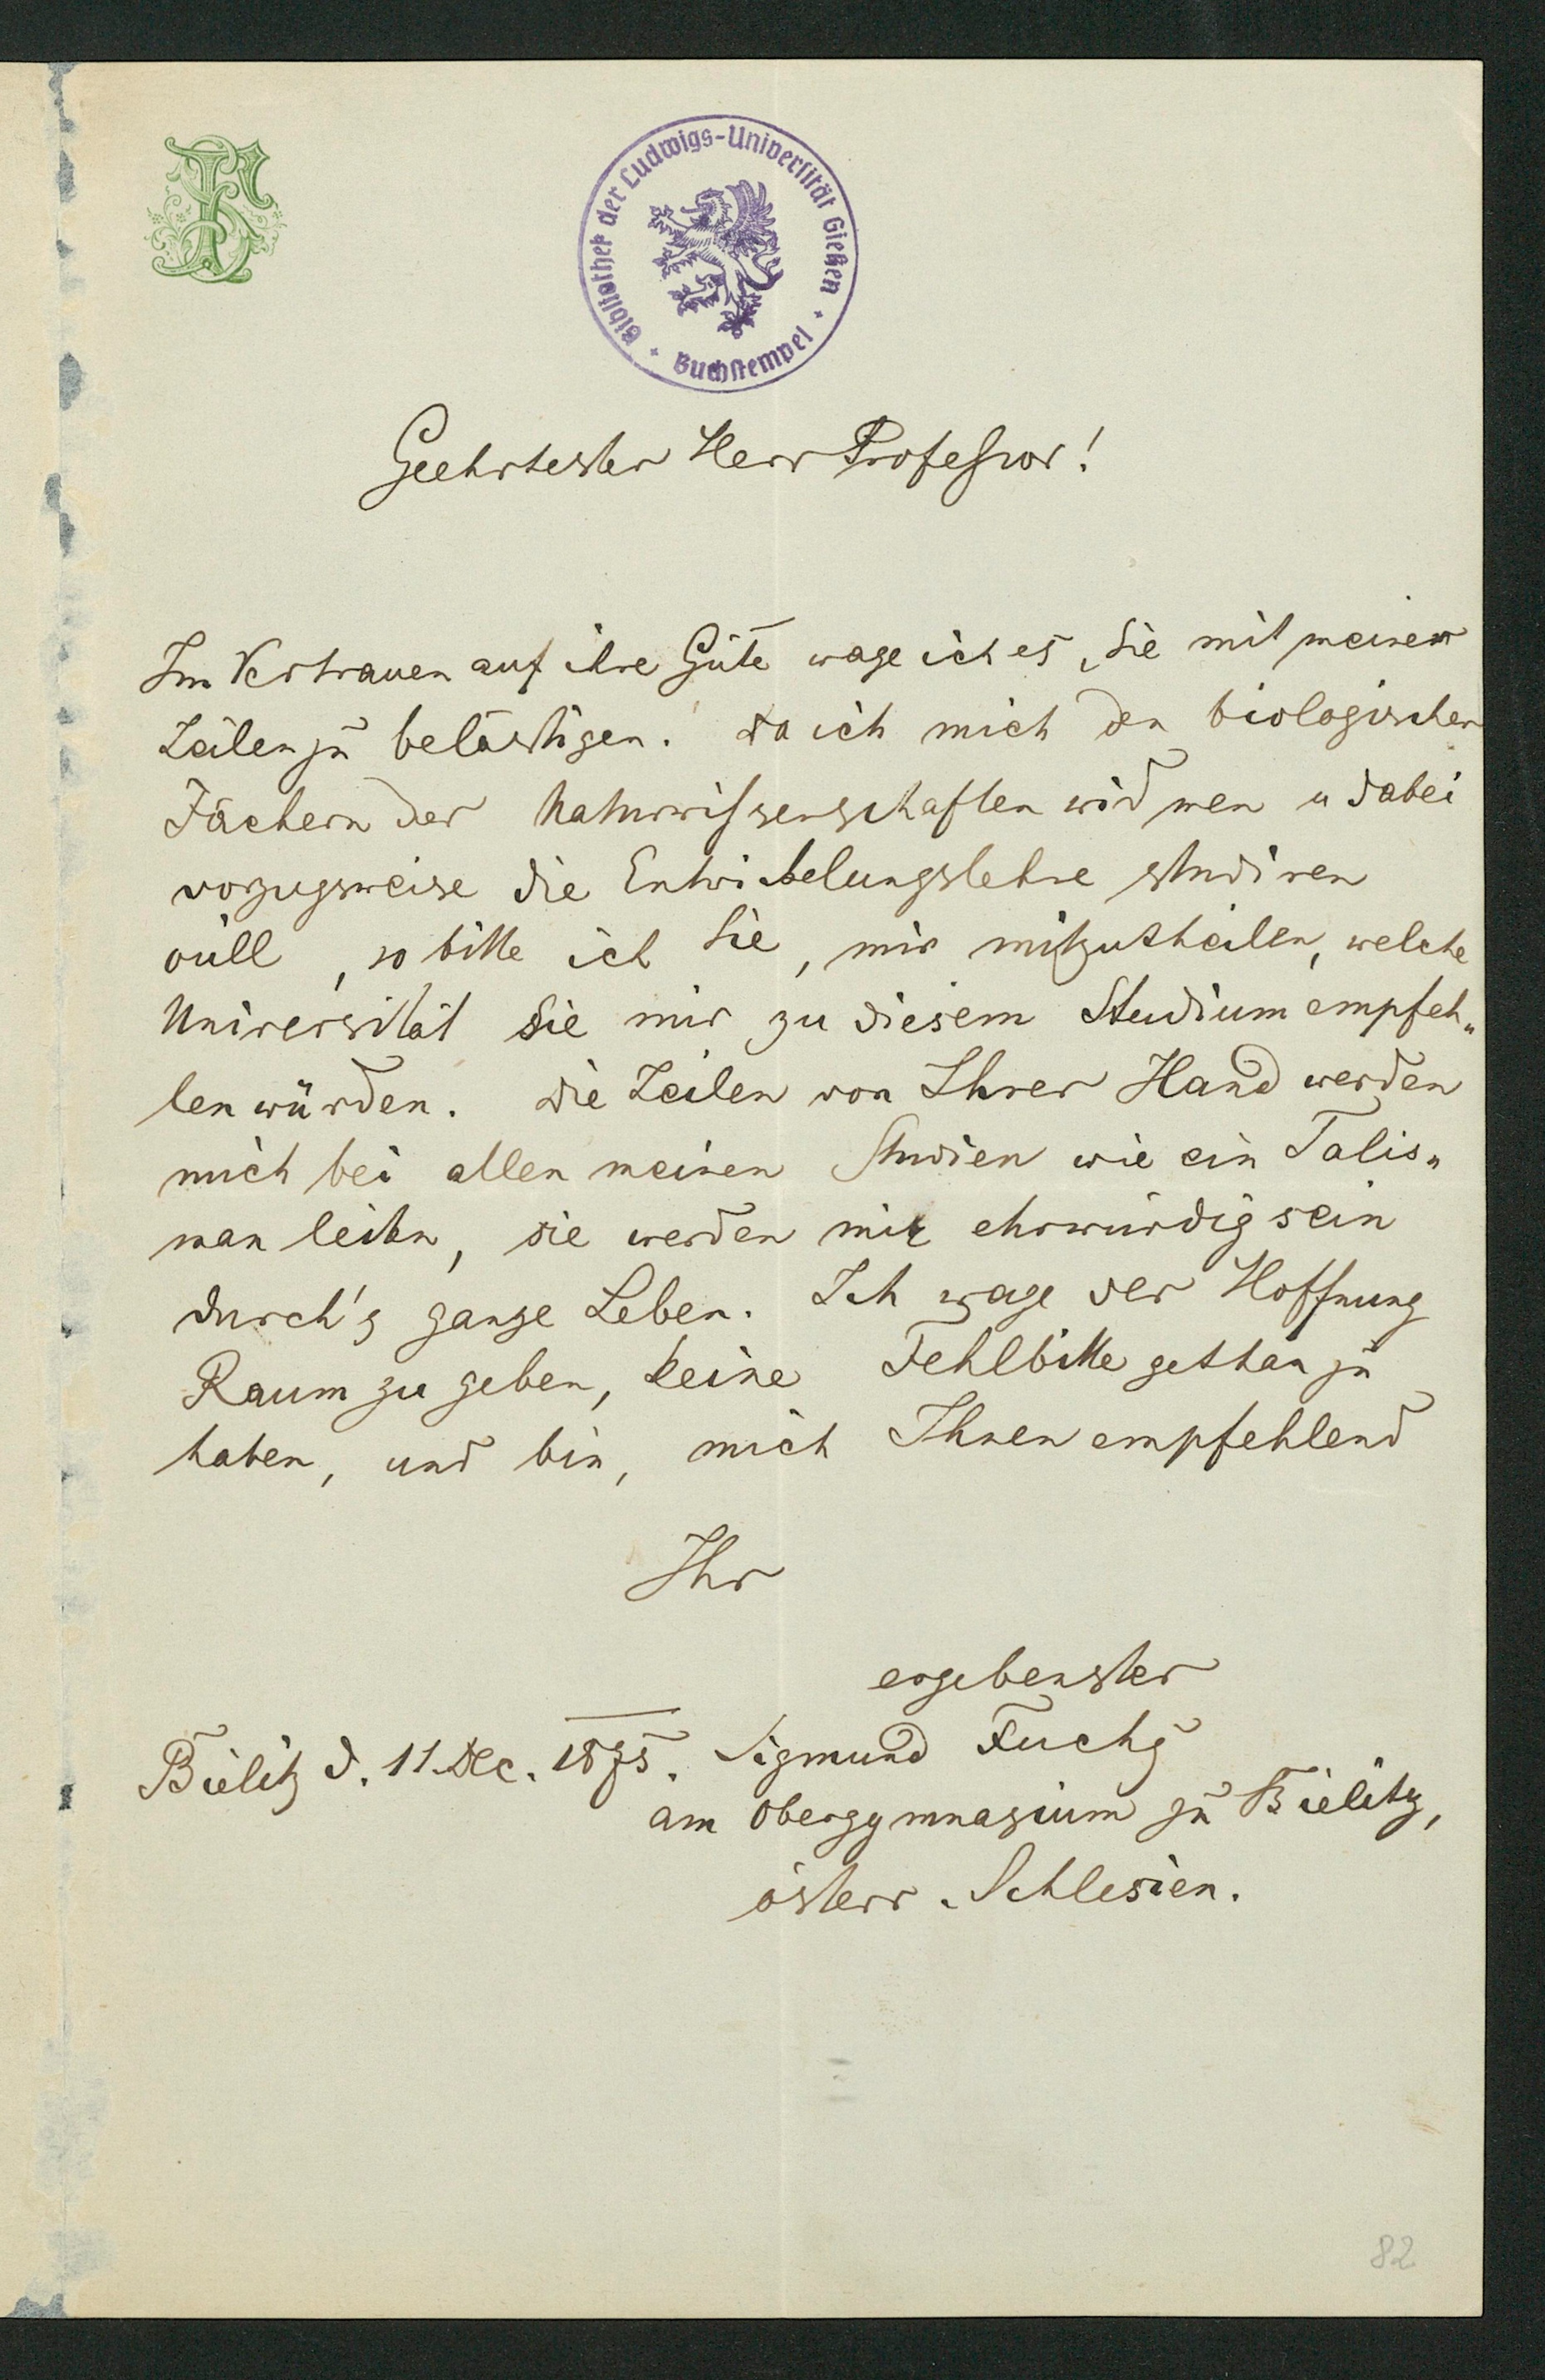 Bibliothek der Ludwigs-Universität Gießen
Buchstempel
Geehrtester Herr Professor!
Im Vertrauen auf ihre Güte wage ich es, Sie mit meinen
Zeilen zu belästigen. Da ich mich den biologischen
Fächern der Naturwissenschaften widmen u dabei
vorzugsweise die Entwickelungslehre studiren
will, so bitte ich Sie, mir mitzutheilen, welche
Universität Sie mir zu diesem Studium empfeh„
len würden. Die Zeilen von Ihrer Hand werden
mich bei allen meinen Studien wie ein Talis„
man leiten, sie werden mir ehrwürdig sein
durch's ganze Leben. Ich wage der Hoffnung
Raum zu geben, keine Fehlbitte gethan zu
haben, und bin, mich Ihnen empfehlend
Ihr
ergebenster
Bielitz d. 11. Dec. 1875. Sigmund Fuchs
am Obergymnasium zu Bielitz,
österr. Schlesien.
82